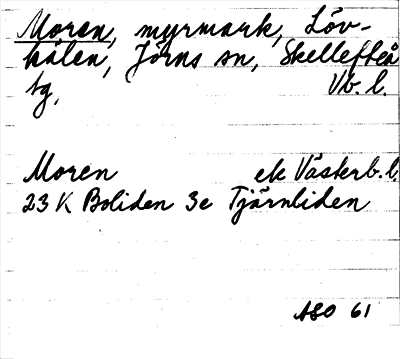 Moren, myrmark, Löv-
hålen, Jörns sn, Skellefteå
tg, Vb. l.
Moren ek Västerb. l.
23 K Boliden 3e Tjärnliden
ABO 61